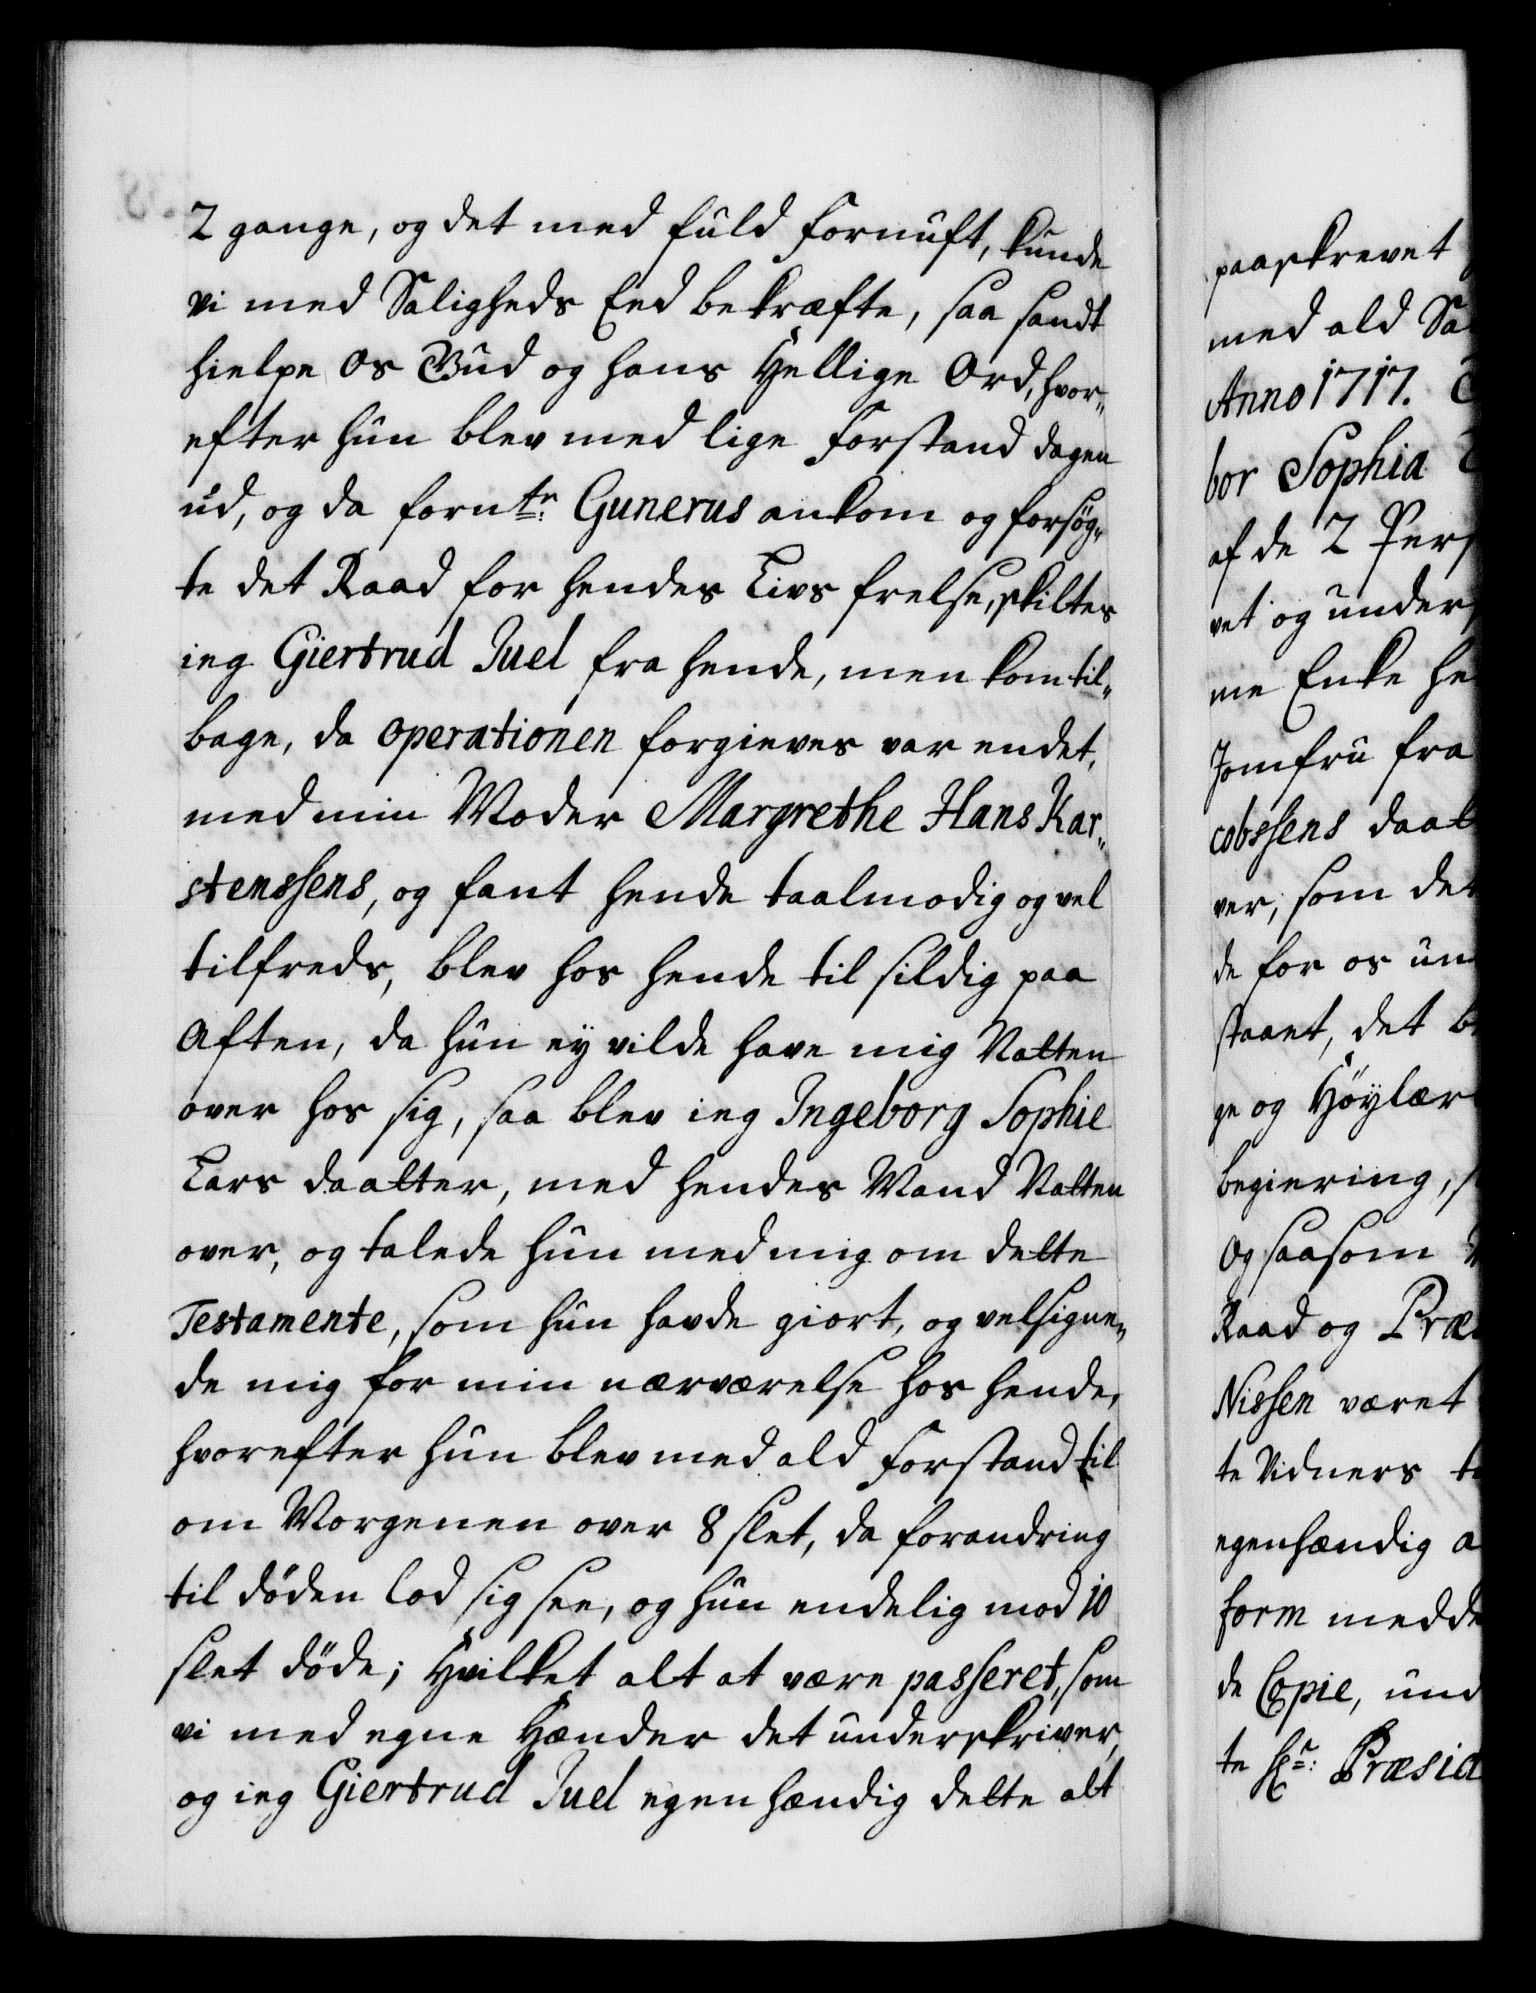 2 gange, og det med fuld Fornuft, kunde
vi med Saligheds Eed bekræfte, saa sandt
hielpe os Gud og hans Hellige Ord, hvor„
efter hun blev med lige Forstand dagen
ud, og da fornte: Gunerus ankom og forsøg„
te det Raad for hendes Livs frelse, skiltes
ieg Giertrud Juel fra hende, men kom til„
bage, da operationen forgieves var endet,
med min Moder Margrethe Hans Kar„
stenssens, og fant hende taalmodig og vel
tilfreds, blev hos hende til sildig paa
Aften, da hun ey vilde have mig Natten
over hos sig, saa blev ieg Ingeborg Sophie
Lars daatter, med hendes Mand Natten
over, og talede hun med mig om dette
Testamente, som hun havde giort, og velsigne„
de mig for min nærværelse hos hende,
hvorefter hun blev med ald Forstand til
om Morgenen over 8 slet, da forandring
til døden lod sig see, og hun endelig mod 10
slet døde; Hvilket alt at være passeret, som
vi med egne Hænder det underskriver,
og ieg Giertrud Juel egenhændig dette alt
paaskrevet
med ald Sa
Anno 1717.
bor Sophia
af de 2 Pers
vet og unders
me Enke he
Jomfru fra
cobssens daat
ver, som det
de for os un
staaet, det b
ge og Høylær
begiering, s
Og saasom
Raad og Præs
Nissen været
te Vidners t
egenhændig a
form medde
de Copie, und
te Hr: Præsid